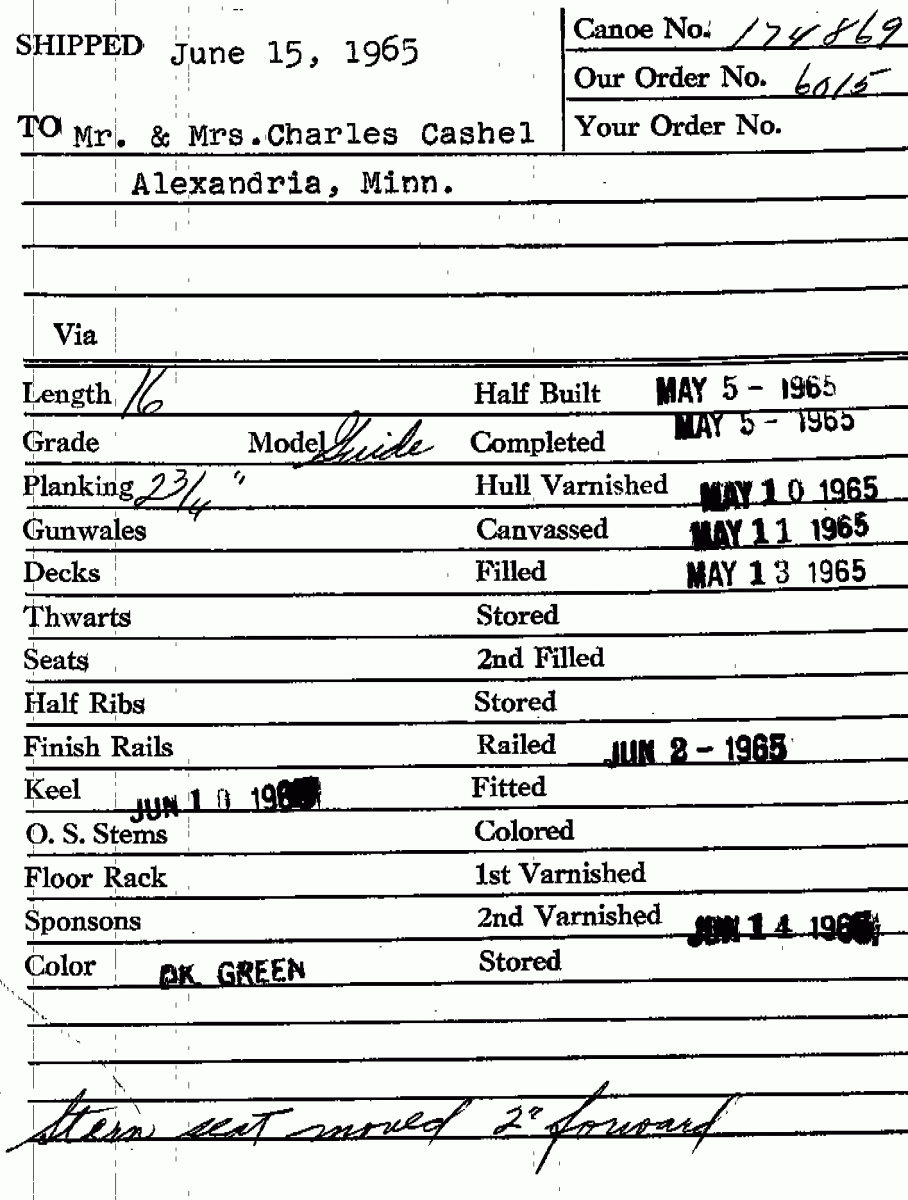 SHIPPED June 15, 1965
Canoe No. 174869
Our Order No. 6015
Your Order No.
TO Mr. & Mrs.Charles Cashel
Alexandria, Minn.
Via
Length 16 Half Built MAY 5 - 1965
Grade Model Guide Completed MAY 5 - 1965
Planking 2 3/4" Hull Varnished MAY 10 1965
Gunwales Canvassed MAY 11 1965
Decks Filled MAY 13 1965
Thwarts Stored
Seats 2nd Filled
Half Ribs Stored
Finish Rails Railed JUN 2 - 1965
Keel JUN 10 1965 Fitted
O. S. Stems Colored
Floor Rack 1st Varnished
Sponsons 2nd Varnished JUN 14 1965
Color DK GREEN Stored
Stern seat moved 2" forward